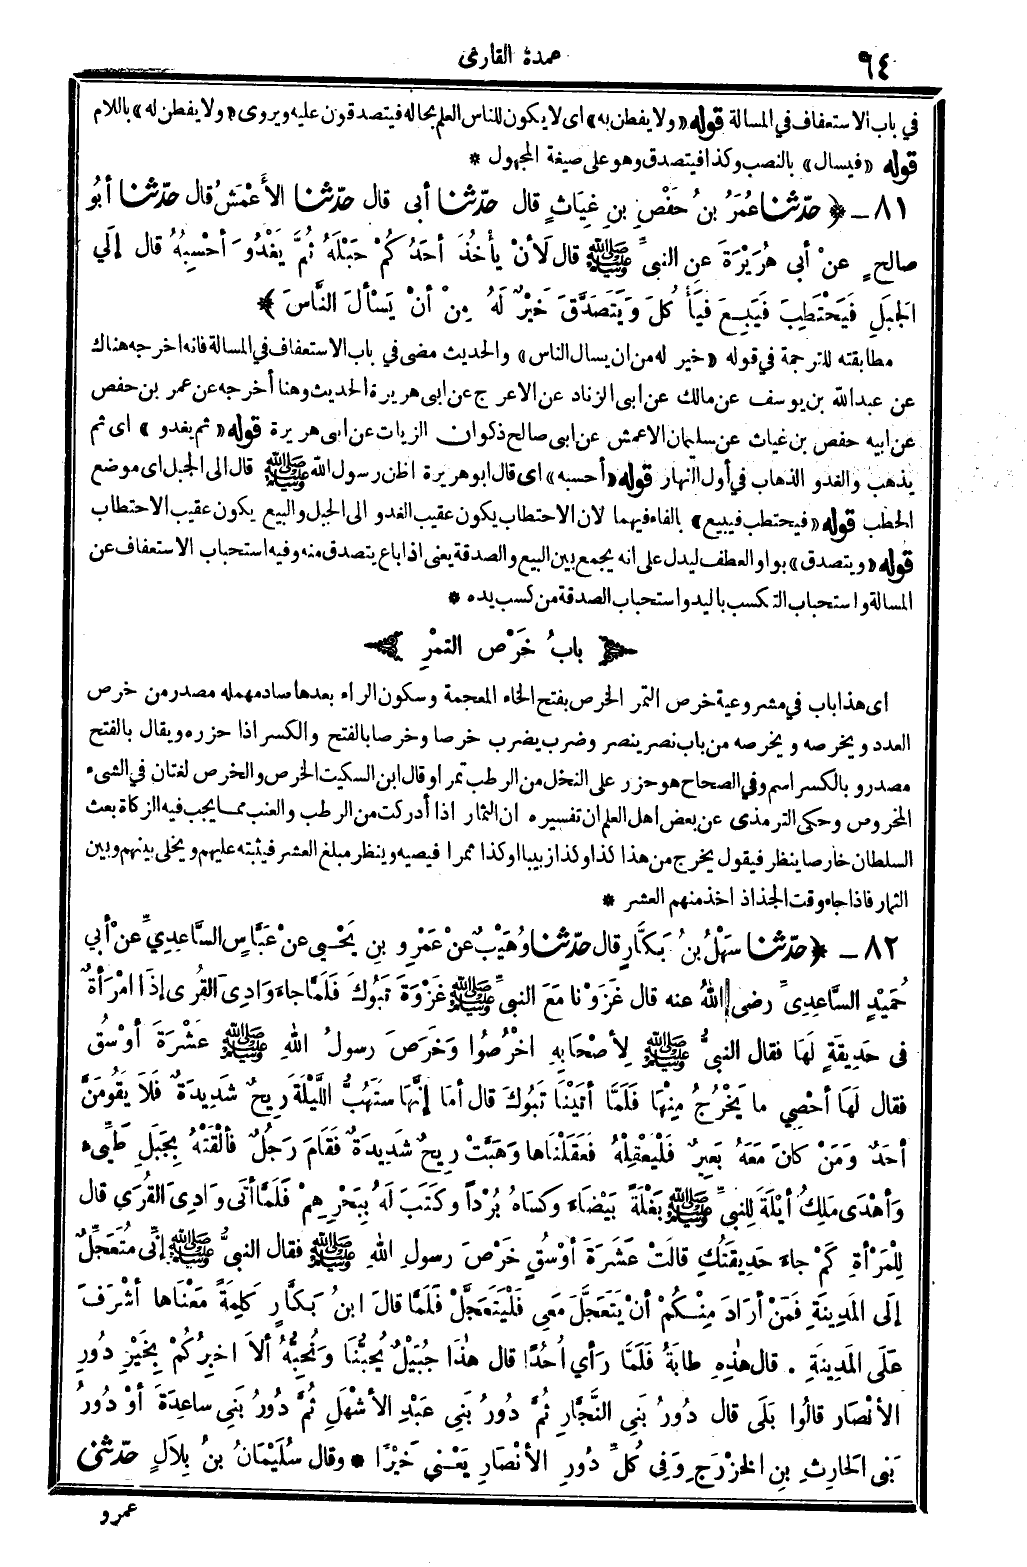 ٩٤
عمدة القارئ
في باب الاستعفاف في المسالة قوله «ولا يفطن به» اى لا يكون للناس العلم بحاله فيتصدقون عليه ويروى «ولا يفطن له» باللام
قوله «فيسال» بالنصب وكذا فيتصدق وهو على صيغة المجهول *
٨١ - ﴿ حدّثنا عُمَرُ بنُ حَفْصِ بنِ غِيَاثٍ قال حدّثنا أبى قال حدّثنا الأَعْمَشُ قال حدّثنا أبُو
صالحٍ عنْ أبى هُرَيْرَةَ عنِ النبىِّ ﷺ قال لَأنْ يأْخُذَ أحَدُكُمْ حَبْلَهُ ثُمَّ يَغْدُوَ أحْسِبُهُ قال إلَي
الجَبَلِ فَيَحْتَطِبَ فَيَبِيعَ فَيَأْكُلَ وَيَتَصَدَّقَ خَيْرٌ لَهُ مِنْ أنْ يَسْألَ النَّاسَ ﴾
مطابقته للترجمة في قوله «خير له من ان يسال الناس» والحديث مضى في باب الاستعفاف في المسالة فانه اخرجه هناك
عن عبدالله بن يوسف عن مالك عن ابى الزناد عن الاعرج عن ابى هريرة الحديث وهنا أخرجه عن عمر بن حفص
عن ابيه حفص بن غياث عن سليمان الاعمش عن ابى صالح ذكوان الزيات عن ابى هريرة قوله «ثم يغدو» اى ثم
يذهب والغدو الذهاب في أول النهار قوله «أحسبه» اى قال ابو هريرة اظن رسول الله ﷺ قال الى الجبل اى موضع
الحطب قوله «فيحتطب فيبيع» بالفاء فيهما لان الاحتطاب يكون عقيب الغدو الى الجبل والبيع يكون عقيب الاحتطاب
قوله «ويتصدق» بواو العطف ليدل على انه يجمع بين البيع والصدقة يعنى اذا باع يتصدق منه وفيه استحباب الاستعفاف عن
المسالة واستحباب التكسب باليد واستحباب الصدقة من كسب يده *
بابُ خَرْصِ التمْرِ
اى هذا باب في مشروعية خرص التمر الخرص بفتح الخاء المعجمة وسكون الراء بعدها صاد مهمله مصدر من خرص
العدد ويخرصه ويخرصه من باب نصر ينصر وضرب يضرب خرصا وخرصا بالفتح والكسر اذا حزره ويقال بالفتح
مصدر وبالكسر اسم وفي الصحاح هو حزر على النخل من الرطب تمرا وقال ابن السكيت الخرص والخرص لغتان في الشىء
المخروص وحكى الترمذى عن بعض اهل العلم ان تفسيره ان الثمار اذا أدركت من الرطب والعنب مما يجب فيه الزكاة بعث
السلطان خارصا ينظر فيقول يخرج من هذا كذا وكذا زبيبا وكذا تمرا فيحصيه وينظر مبلغ العشر فيثبته عليهم ويخلى بينهم وبين
الثمار فاذا جاء وقت الجذاذ اخذ منهم العشر *
٨٢ - ﴿ حدّثنا سَهْلُ بنُ بَكَّارٍ قال حدّثنا وُهَيْبٌ عنْ عَمْرِو بنِ يَحْيى عنْ عَبَّاسٍ السَّاعِدِيِّ عنْ أبي
حُمَيْدٍ السَّاعِدِىِّ رضى اللهُ عنه قال غَزَوْنا مَعَ النبىِّ ﷺ غزْوَةَ تَبُوكَ فَلَمَّا جاءَ وَادِىَ القُرى إذَا امْرَأةٌ
فى حَدِيقةٍ لهَا فقال النبىُّ ﷺ لِأصْحَابِهِ اخْرُصُوا وَخَرَصَ رسولُ اللهِ ﷺ عَشْرَةَ أوْسُقٍ
فقال لَهَا أحْصِي ما يَخْرُجُ مِنْهَا فَلَمَّا أتَيْنَا تَبُوكَ قال أمَا إنَّهَا سَتَهُبُّ اللَّيْلَةَ رِيحٌ شَدِيدَةٌ فَلاَ يَقُومَنَّ
أحَدٌ وَمَنْ كانَ مَعَهُ بَعِيرٌ فَلْيَعْقِلْهُ فَعَقَلْنَاها وَهَبَّتْ رِيحٌ شَدِيدَةٌ فَقَامَ رَجُلٌ فألْقَتْهُ بِجَبَلِ طَيِّىءٍ
وَأهْدَى مَلِكُ أيْلَةَ لِلنبىِّ ﷺ بَغْلَةً بَيْضَاءَ وكساهُ بُرْداً وكتَبَ لَهُ بِبَحْرِهِمْ فَلَمَّا أتَى وَادِىَ القُرَى قال
لِلْمَرْأةِ كمْ جاءَ حَدِيقَتُكِ قالَتْ عَشَرَةَ أوْسُقٍ خَرْصَ رسولِ اللهِ ﷺ فقال النبىُّ ﷺ إنِّى مُتَعَجِّلٌ
إلَى المَدِينَةِ فَمَنْ أرَادَ مِنْكُمْ أنْ يَتَعَجَّلَ مَعِى فَلْيَتَعَجَّلْ فَلَمَّا قالَ ابنُ بَكَّارٍ كَلِمَةً مَعْنَاها أشْرَفَ
عَلَى المَدِينَةِ . قال هٰذِهِ طابَةُ فَلَمَّا رَأي أُحُدًا قال هٰذَا جُبَيْلٌ يُحِبُّنَا وَنُحِبُّهُ ألاَ أخبِرُكُمْ بِخَيْرِ دُورِ
الأنْصَارِ قالُوا بَلَى قال دُورُ بَنِى النَّجَّارِ ثُمَّ دُورُ بَنِي عَبْدِ الأشْهَلِ ثُمَّ دُورُ بَنِي ساعِدَةَ أوْ دُورُ
بَنِى الحَارِثِ بنِ الخَزْرَجِ وَفِى كُلِّ دُورِ الأنْصَارِ يَعْنِي خَيْرًا * وقال سُلَيْمَانُ بنُ بِلاَلٍ حدّثنى
عمرو